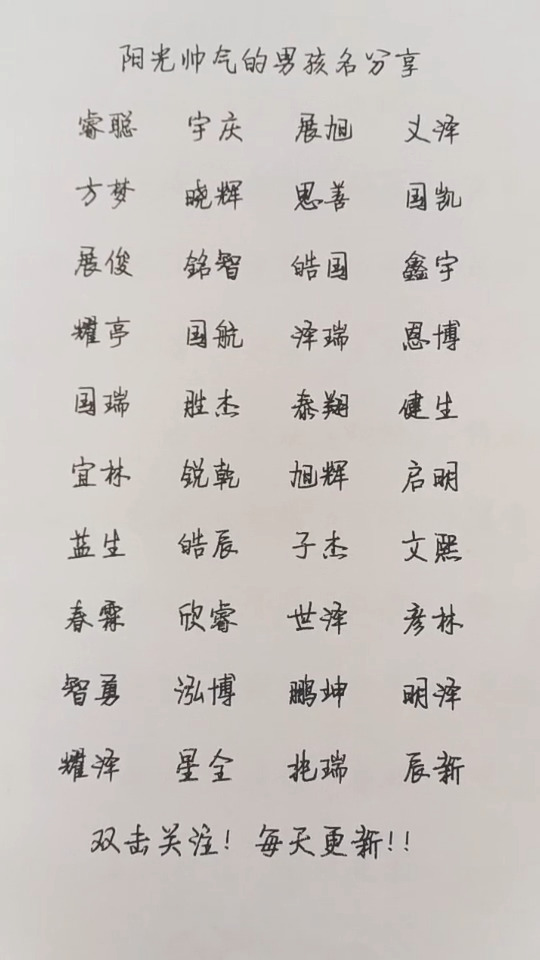 阳光帅气的男孩名分享
睿聪 宇庆 展旭 义泽
方梦 晓辉 思善 国凯
展俊 铭智 皓国 鑫宇
耀亭 国航 泽瑞 恩博
国瑞 胜杰 泰翔 健生
宜林 锐乾 旭辉 启明
益生 皓辰 子杰 文熙
春霖 欣睿 世泽 彦林
智勇 泓博 鹏坤 明泽
耀泽 星全 瑞 辰新
双击关注! 每天更新!!